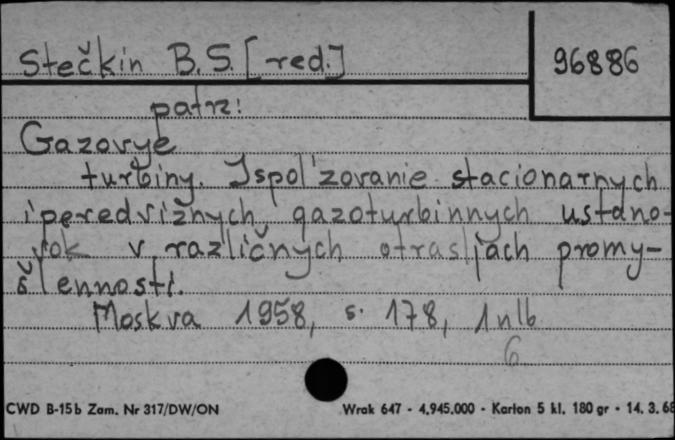 Stečkin B.S. [red.]
96886
patrz:
Gazovye
turbiny. Ispol'zovanie stacionarnych
i peredvižnych gazoturbinnych ustano-
vok v različnych otrasljach promy-
šlennosti.
Moskva 1958, s. 178, 1 nlb
6
CWD B-15b Zam. Nr 317/DW/ON
Wrak 647 - 4.945.000 - Karton 5 kl. 180 gr - 14. 3. 68